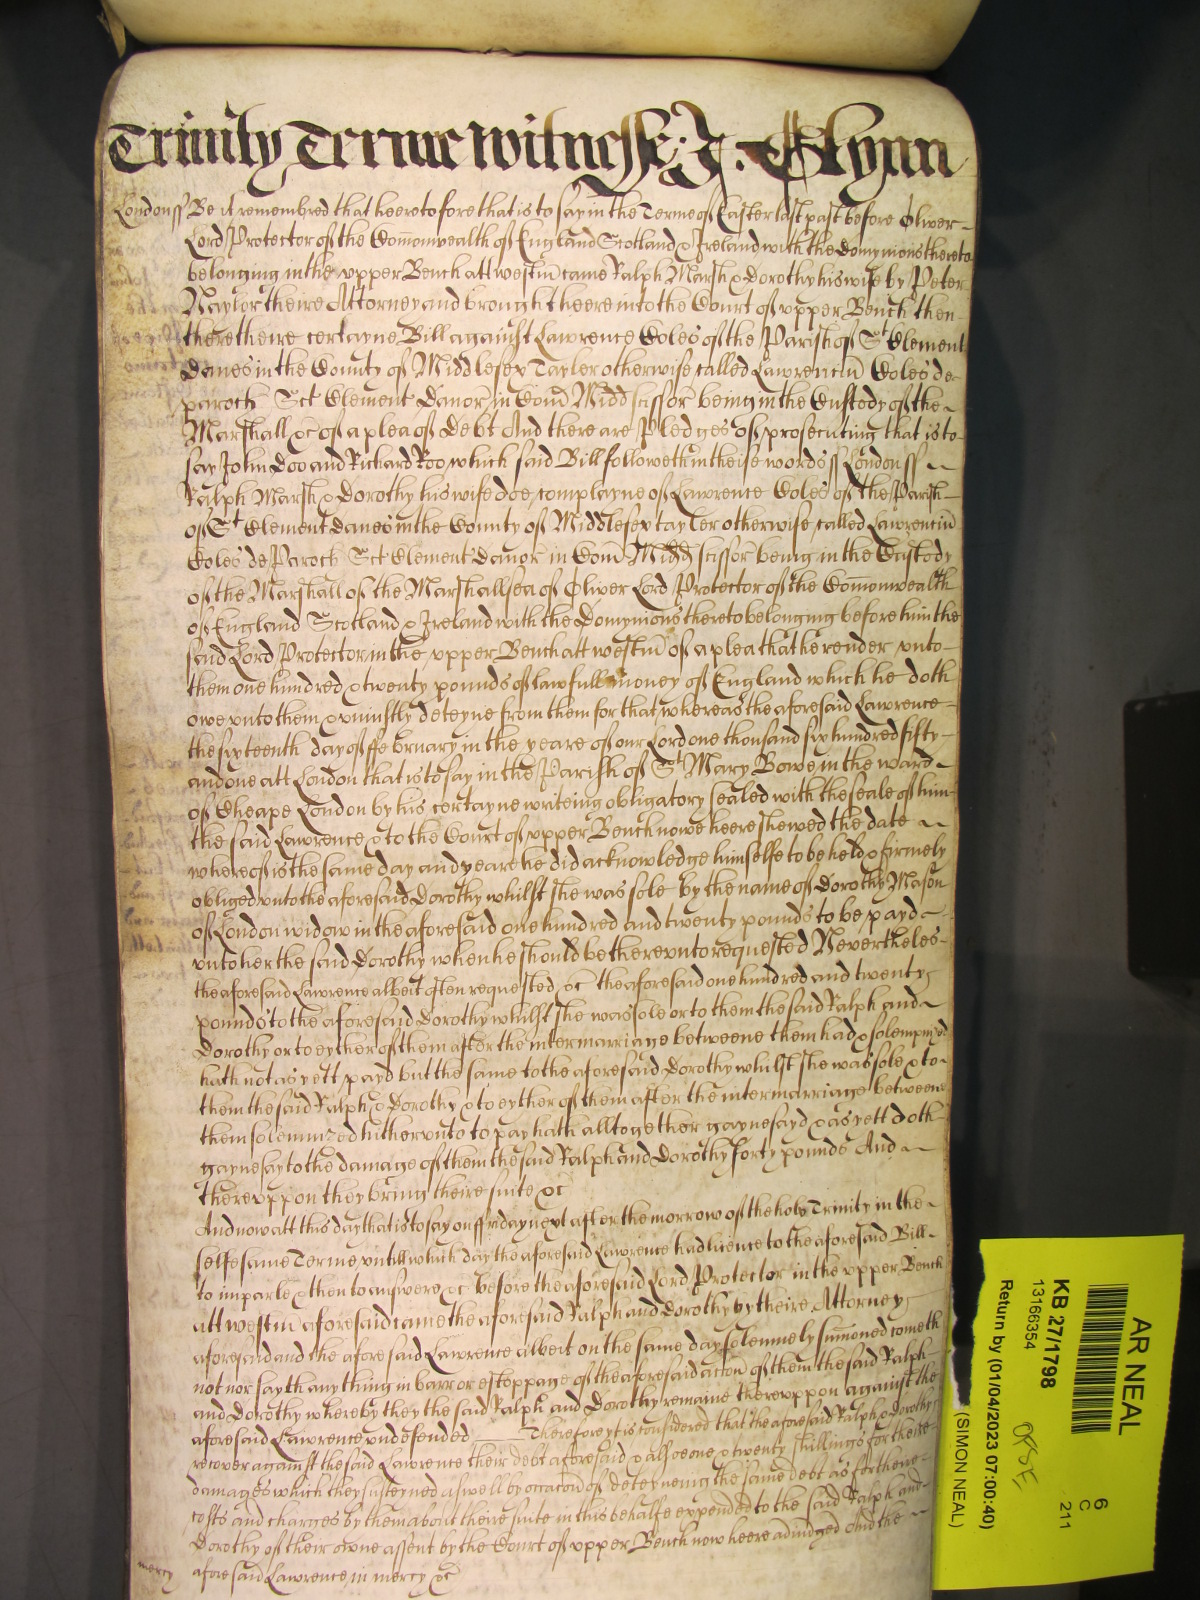 Trinity Terme Witnesse: J: Glynn
London ss Be it remembred that heeretofore that is to say in the Terme of Easter last past before Oliver
Lord Protector of the Comonwealth of England Scotland & Ireland with the Domynions thereto
belonging in the upper Bench att westm came Ralph Marsh & Dorothy his wife by Peter
Naylor theire Attorney and brought heere into the Court of upper Bench then
there theire certayne Bill against Lawrence Coles of the Parish of St Clement
Danes in the County of Middlesex Tayler otherwise called Lawrenciu Coles de
paroch Sct Clement Danor in Com Midd scissor being in the Custody of the
Marshall &c of a plea of Debt And there are Pledges of prosecuting that is to
say John Doo and Richard Roo, which said Bill followeth in theise words ss London ss
Ralph Marsh & Dorothy his wife doe complayne of Lawrence Coles of the Parish
of St Clement Danes in the County of Middlesex tayler otherwise called Lawrenciu
Coles de Paroch Sct Clement Danor in Com Midd scissor being in the Custody
of the Marshall of the Marshallsea of Oliver Lord Protector of the Comonwealth
of England Scotland & Ireland with the Domynions thereto belonging before him the
said Lord Protector in the upper Bench att westm of a plea that he render unto
them one hundred & twenty pounds of lawfull money of England which he doth
owe unto them & uniustly deteyne from them for that, whereas the aforesaid Lawrence
the sixteenth day of ffebruary in the yeare of our Lord one thousand six hundred fifty
and one att London that is to say in the Parish of St Mary Bowe in the ward
of Cheape London by his certayne writeing obligatory sealed with the seale of him
the said Lawrence & to the Court of upper Bench nowe heere shewed the date
whereof is the same day and yeare he did acknowledge himselfe to be held & firmely
obliged unto the aforesaid Dorothy whilst she was sole by the name of Dorothy Mason
of London widow in the aforesaid one hundred and twenty pounds to be payd
unto her the said Dorothy when he should be thereunto requested Neverthelesse
the aforesaid Lawrence albeit often requested &c the aforesaid one hundred and twenty
pounds to the aforesaid Dorothy whilst she was sole or to them the said Ralph and
Dorothy or to eyther of them after the intermarriage betweene them had & solempnized
hath not as yett payd but the same to the aforesaid Dorothy whilst she was sole & to
them the said Ralph & Dorothy & to eyther of them after the intermarriage betweene
them solemnized hitherunto to pay hath alltogether gaynesayd & as yett doth
gaynesay to the damage of them the said Ralph and Dorothy forty pounds And
thereuppon they bring theire suite &c
And now att this day that is to say on ffriday next after the morrow of the holy Trinity in the
selfe same Terme untill which day the aforesaid Lawrence had licence to the aforesaid Bill
to imparle & then to answere &c before the aforesaid Lord Protector in the upper Bench
att westm aforesaid came the aforesaid Ralph and Dorothy by theire Attorney
aforesaid and the aforesaid Lawrence albeit on the same day solemnely sumoned cometh
not nor sayth any thing in barr or estoppage of the aforesaid accon of them the said Ralph
and Dorothy whereby they the said Ralph and Dorothy remaine thereuppon against the
aforesaid Lawrence undefended Therefore yt is considered that the aforesaid Ralph & Dorothy
recover against the said Lawrence their debt aforesaid & alsoe one & twenty shillings for theire
damages which they susteyned aswell by occacon of deteyneing the same debt as for theire
costs and charges by them about theire suite in this behalfe expended to the said Ralph and
Dorothy of their owne assent by the Court of upper Bench now heere adiudged And the
mercy aforesaid Lawrence in mercy &c
AR NEAL
6
C
211
KB 27/1798
13166354
Return by (01/04/2023 07:00:40)
(SIMON NEAL)